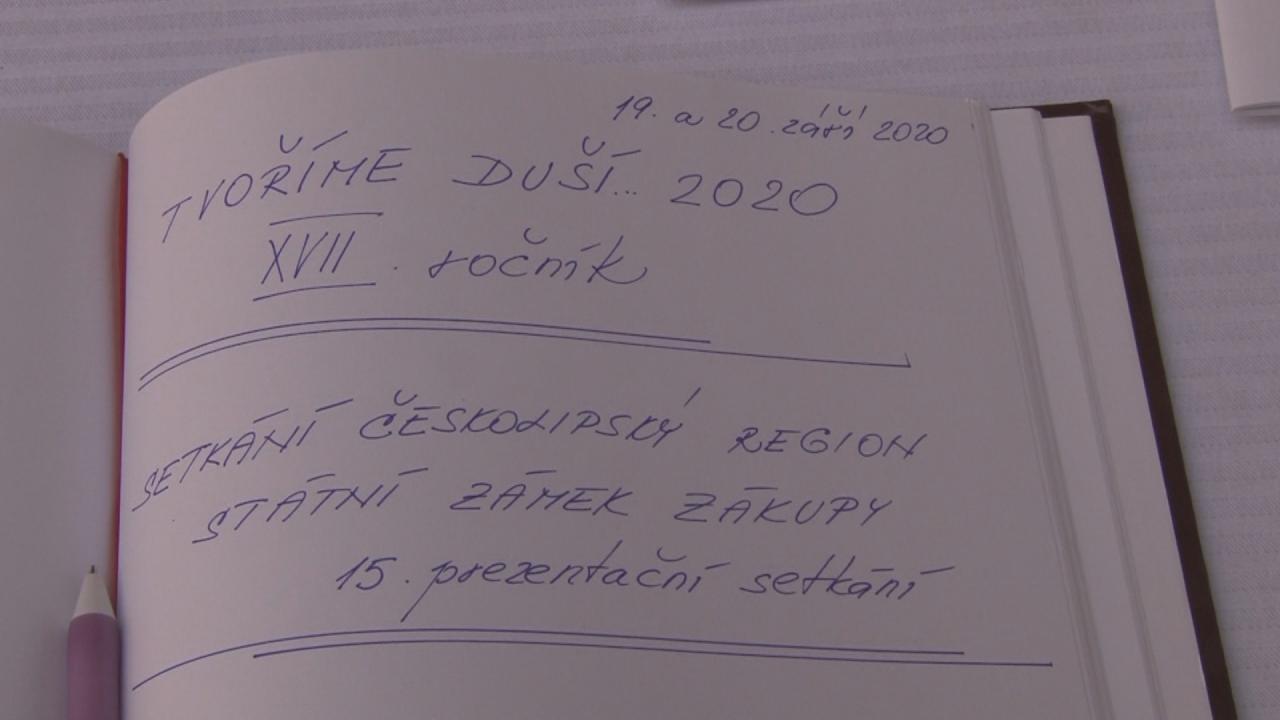 19. a 20. září 2020
TVOŘÍME DUŠÍ... 2020
XVII. ročník
SETKÁNÍ ČESKOLIPSKÝ REGION
STÁTNÍ ZÁMEK ZÁKUPY
15. prezentační setkání